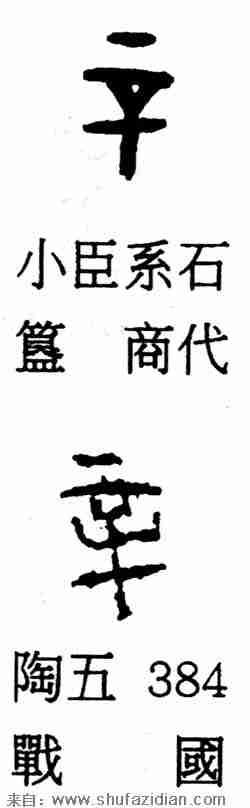 辛
小臣系石
簋 商代
辛
陶五 384
戰 國
来自: www.shufazidian.com